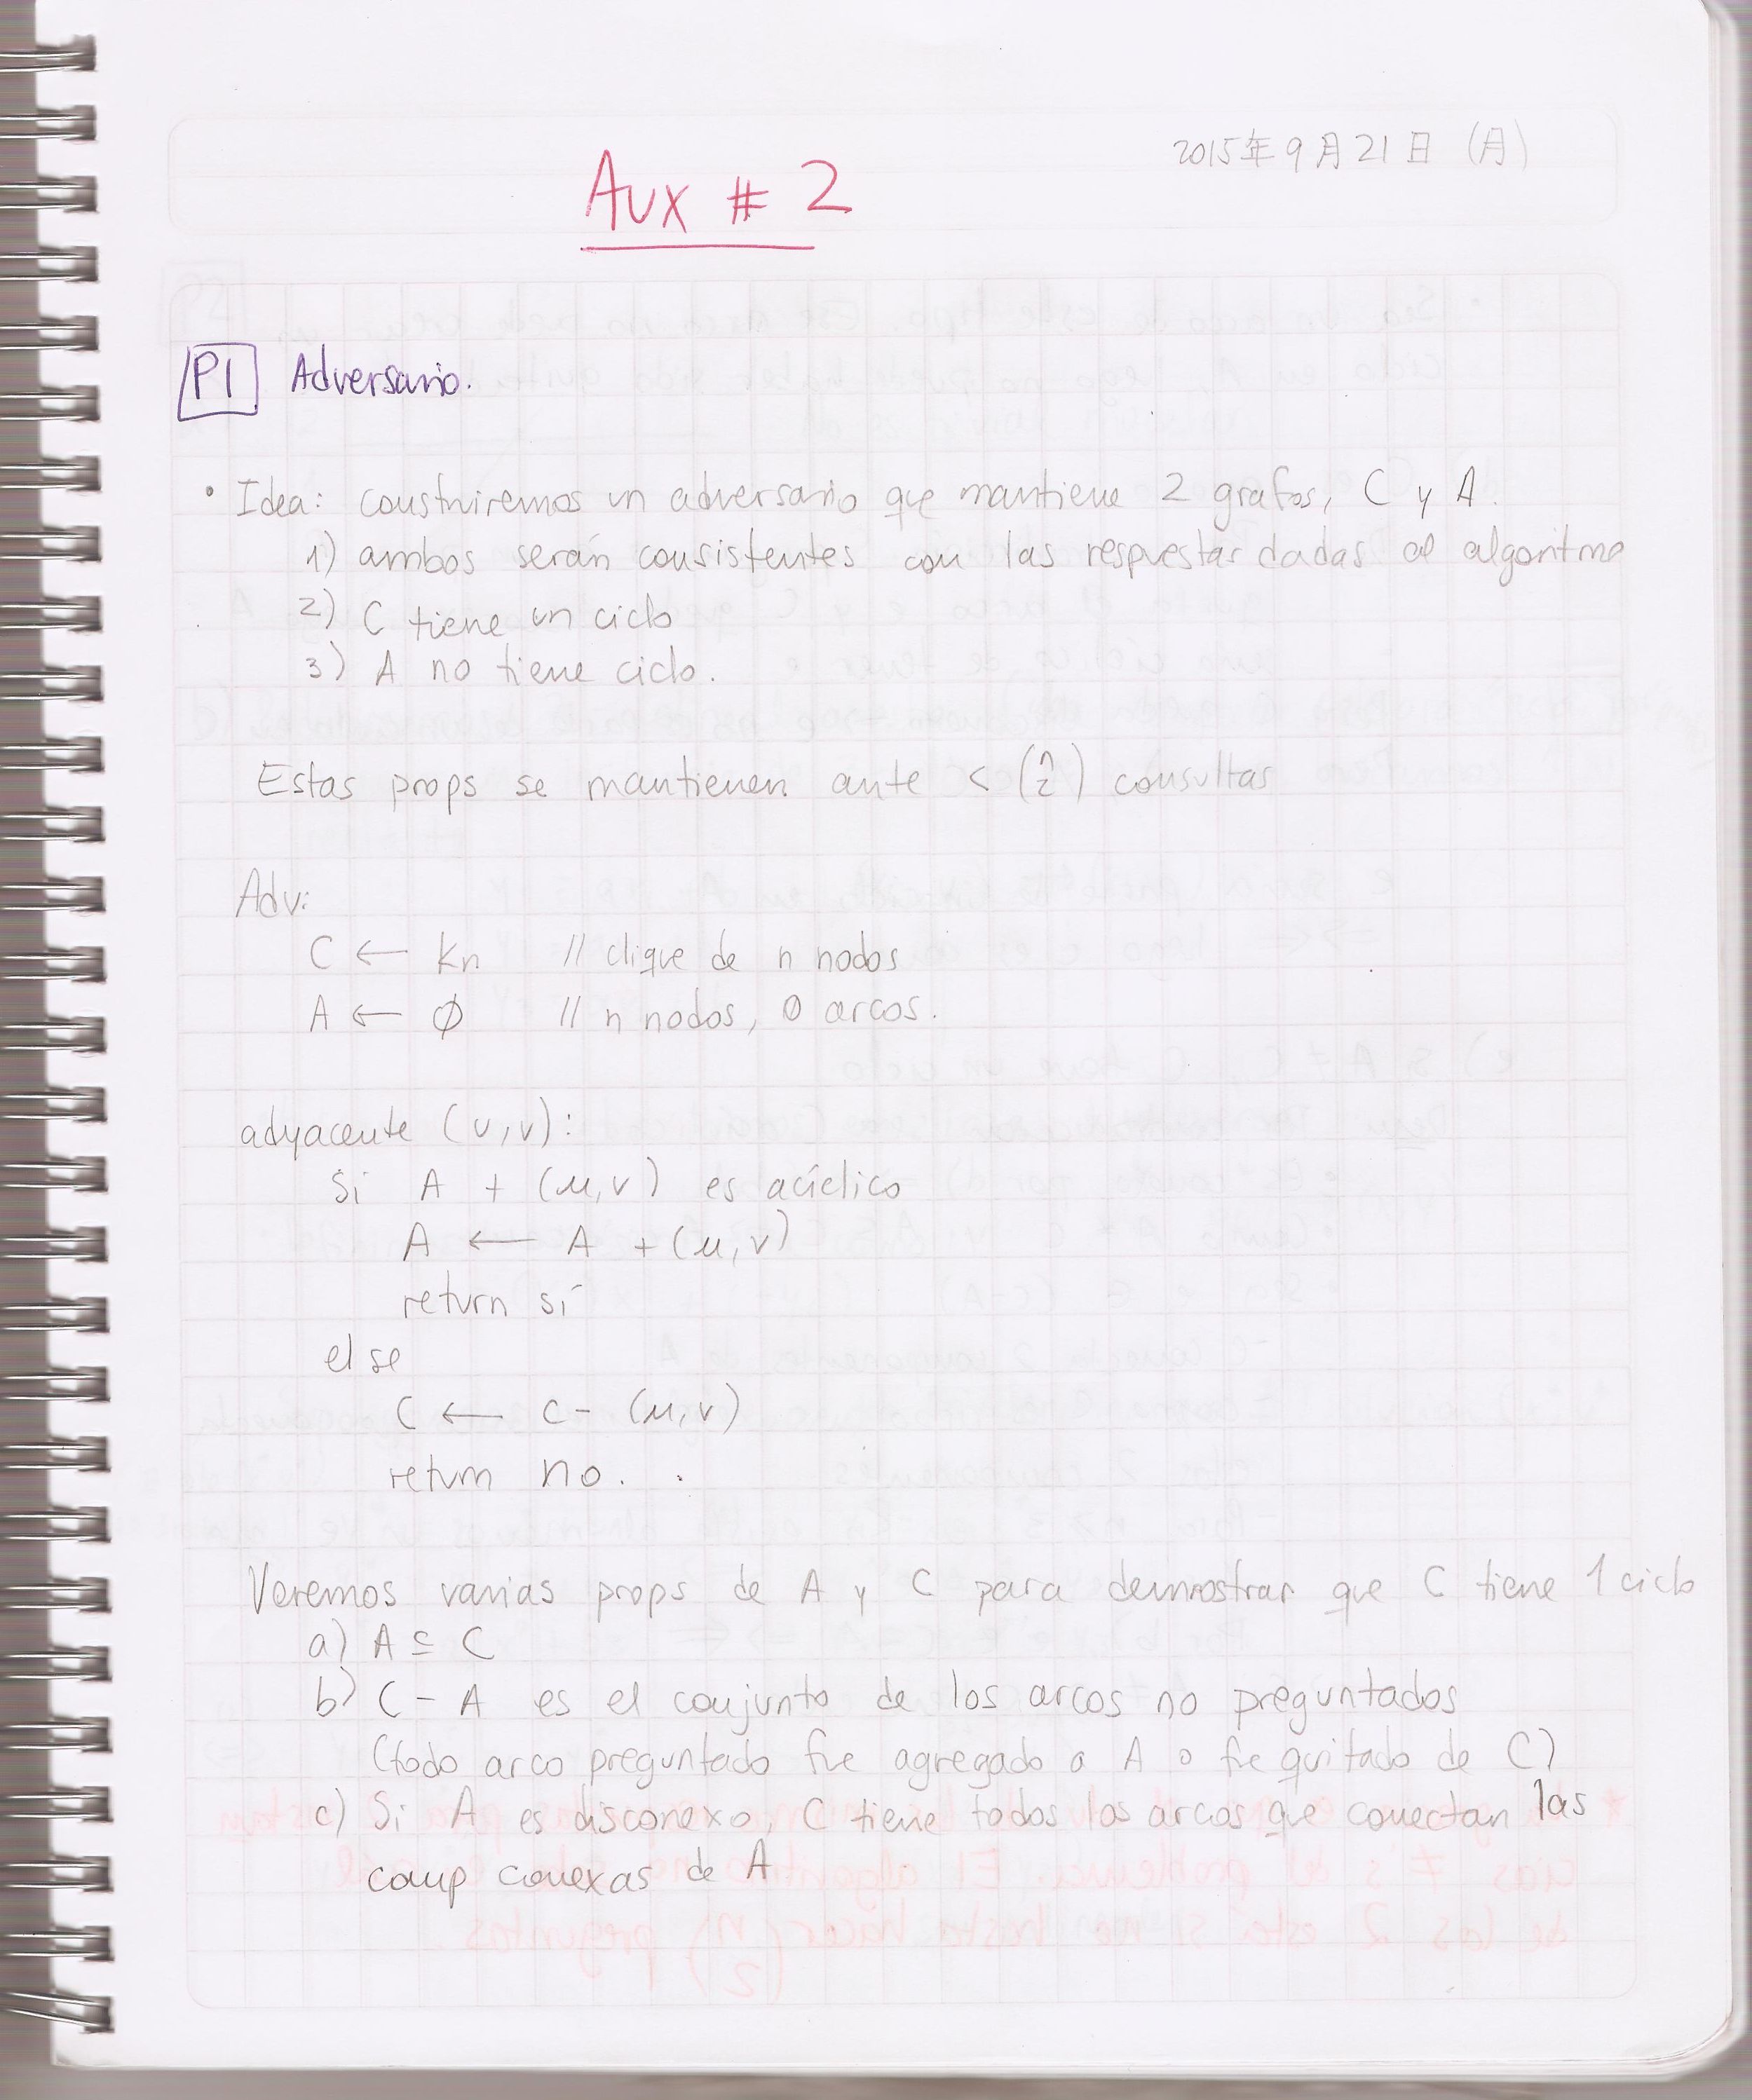 2015年9月21日 (月)
Aux # 2
P1 Adversario.
• Idea: construiremos un adversario que mantiene 2 grafos, C y A.
1) ambos serán consistentes con las respuestas dadas al algoritmo
2) C tiene un ciclo
3) A no tiene ciclo.
Estas props se mantienen ante < (n 2) consultas
Adv:
C ← Kn // clique de n nodos
A ← ∅ // n nodos, 0 arcos.
adyacente (u,v):
Si A + (u,v) es acíclico
A ← A + (u,v)
return sí
else
C ← C - (u,v)
return no.
Veremos varias props de A y C para demostrar que C tiene 1 ciclo
a) A ⊆ C
b) C - A es el conjunto de los arcos no preguntados
(todo arco preguntado fue agregado a A o fue quitado de C)
c) Si A es disconexo, C tiene todos los arcos que conectan las
comp conexas de A